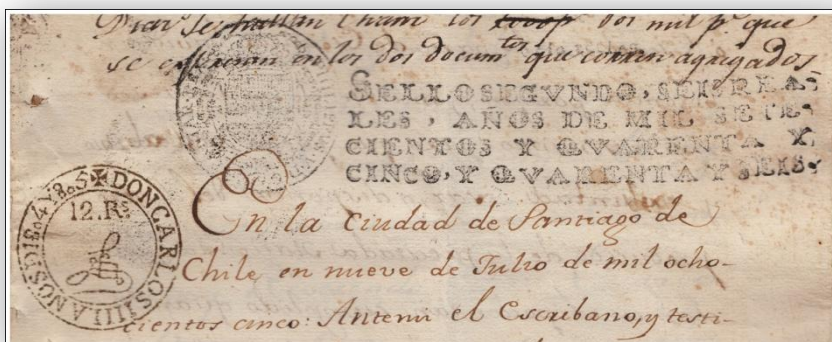 se hallan los dos mil p.s que
se expresan en los dos docum.tos que corren agregados
SELLO SEGVNDO, SEIS REA-
LES, AÑOS DE MIL SETE-
CIENTOS Y QVARENTA Y
CINCO, Y QVARENTA Y SEIS.
DON CARLOS IIII. AÑOS D 18.4 Y 8.5
12. Rs
En la ciudad de Santiago de
Chile en nueve de Julio de mil ocho-
cientos cinco: Antemi el Escribano, y testi-